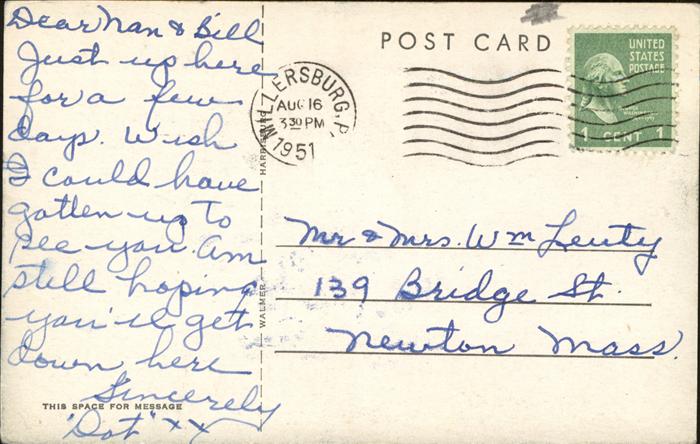 Dear Nan & Bill
Just up here
for a few
days. Wish
I could have
gotten up to
see you. Am
still hoping
you'll get
down here
Sincerely
"Dot" xx
THIS SPACE FOR MESSAGE
WALMER HARRISBURG, PA.
POST CARD
MILLERSBURG, PA.
AUG 16
3 30 PM
1951
UNITED
STATES
POSTAGE
1 CENT 1
Mr & Mrs. Wm Lenty
139 Bridge St.
Newton Mass.